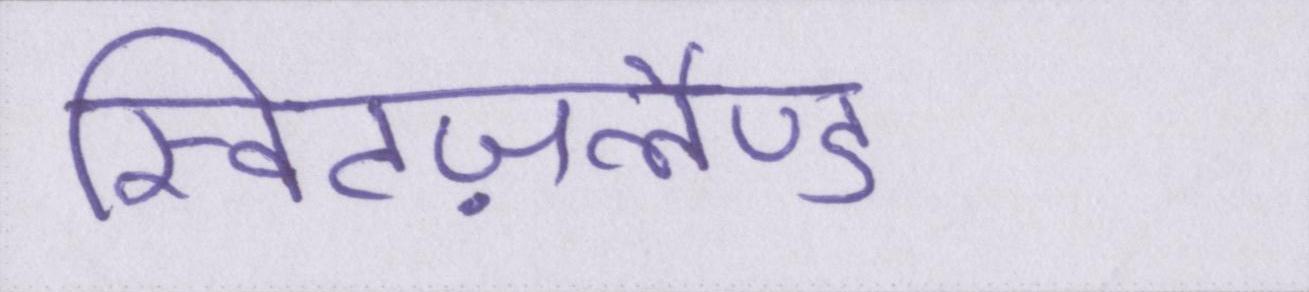 स्विटज़लैण्ड